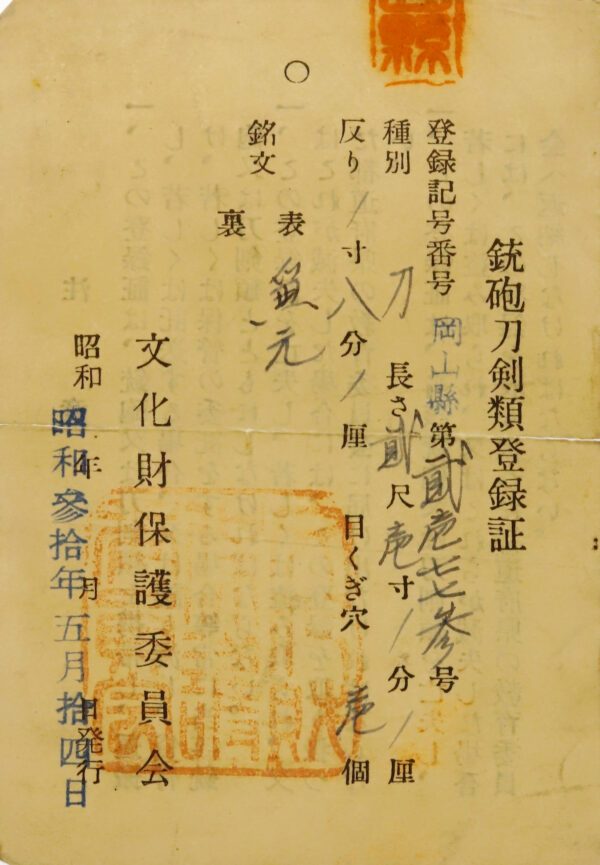 縣
銃砲刀剣類登録証
登録記号番号 岡山縣第貳壱七七参号
種別 刀 長さ貳尺壱寸/分/厘
反り/寸八分/厘 目くぎ穴 壱個
銘文 表 元
裏
文化財保護委員会
昭和 年 月 日発行
昭和参拾年五月拾四日